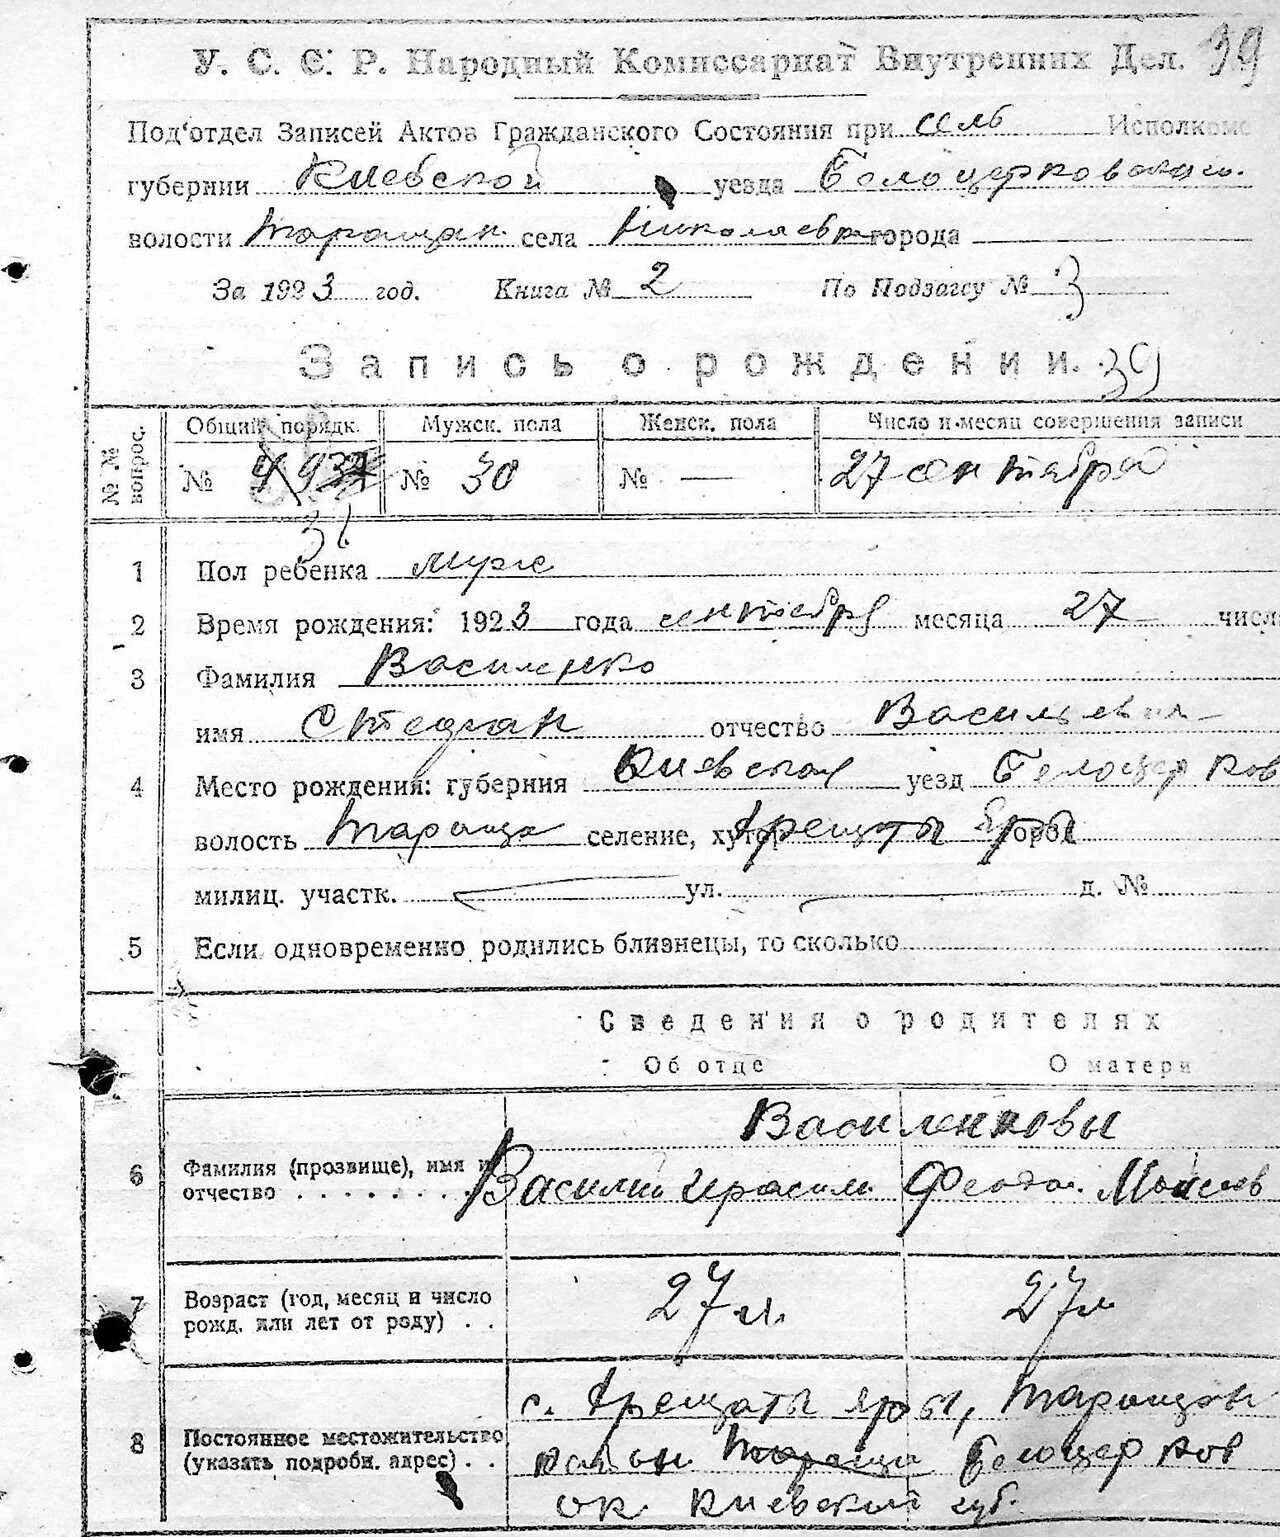 У. С. С. Р. Народный Комиссариат Внутренних Дел. 39
Под'отдел Записей Актов Гражданского Состояния при сель Исполкоме
губернии Киевской уезда Белоцерковского.
волости Таращан села Николаевка города
За 1923 год. Книга № 2 По Подзагсу № 3
Запись о рождении. 39
№ № вопрос.
Общий порядк. Мужск. пола Женск. пола Число и месяц совершения записи
№ № 30 № — 27 сентября
36
1 Пол ребенка муж
2 Время рождения: 1923 года сентября месяца 27 числ
3 Фамилия Василенко
имя Стефан отчество Васильевич
4 Место рождения: губерния Киевская уезд Белоцерков
волость Тараща селение, хутор Крещаты Яры город
милиц. участк. ул. д. №
5 Если одновременно родились близнецы, то сколько
Сведения о родителях
Об отце О матери
Василенковы
6 Фамилия (прозвище), имя и отчество . . . . . . . . Василий Герасим Феодос. Моисеев
7 Возраст (год, месяц и число рожд. или лет от роду) . . 27 л. 27 л
8 Постоянное местожительство (указать подробн. адрес) . .
с. Крещаты яры, Таращан
район Тараща Белоцерков
ок. Киевской губ.